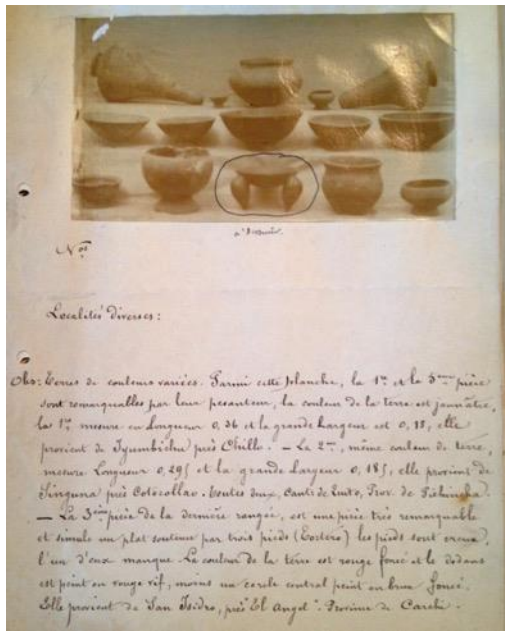 a' Dessiner.
Nos
Localités diverses:
Obs: Terres de couleurs variées. Parmi cette planche, la 1re et la 5ème pièce
sont remarquables par leur pesanteur, la couleur de la terre est jaunâtre,
la 1re mesure en Longueur 0,36 et la grande Largeur est 0,18, elle
provient de près Chillo. — La 2me, même couleur de terre,
mesure Longueur 0,295 et la grande Largeur 0,185, elle provient de
près Cotocollao. toutes deux, Cantn de Quito, Prov. de Pichincha.
— La 3ème pièce de la dernière rangée, est une pièce très remarquable
et simule un plat soutenu par trois pieds (Tortero) les pieds sont creux,
l'un d'eux manque. La couleur de la terre est rouge foncé et le dedans
est peint en rouge vif, moins un cercle central peint en brun foncé.
Elle provient de San Isidro, près "El Angel". Province de Carchi.